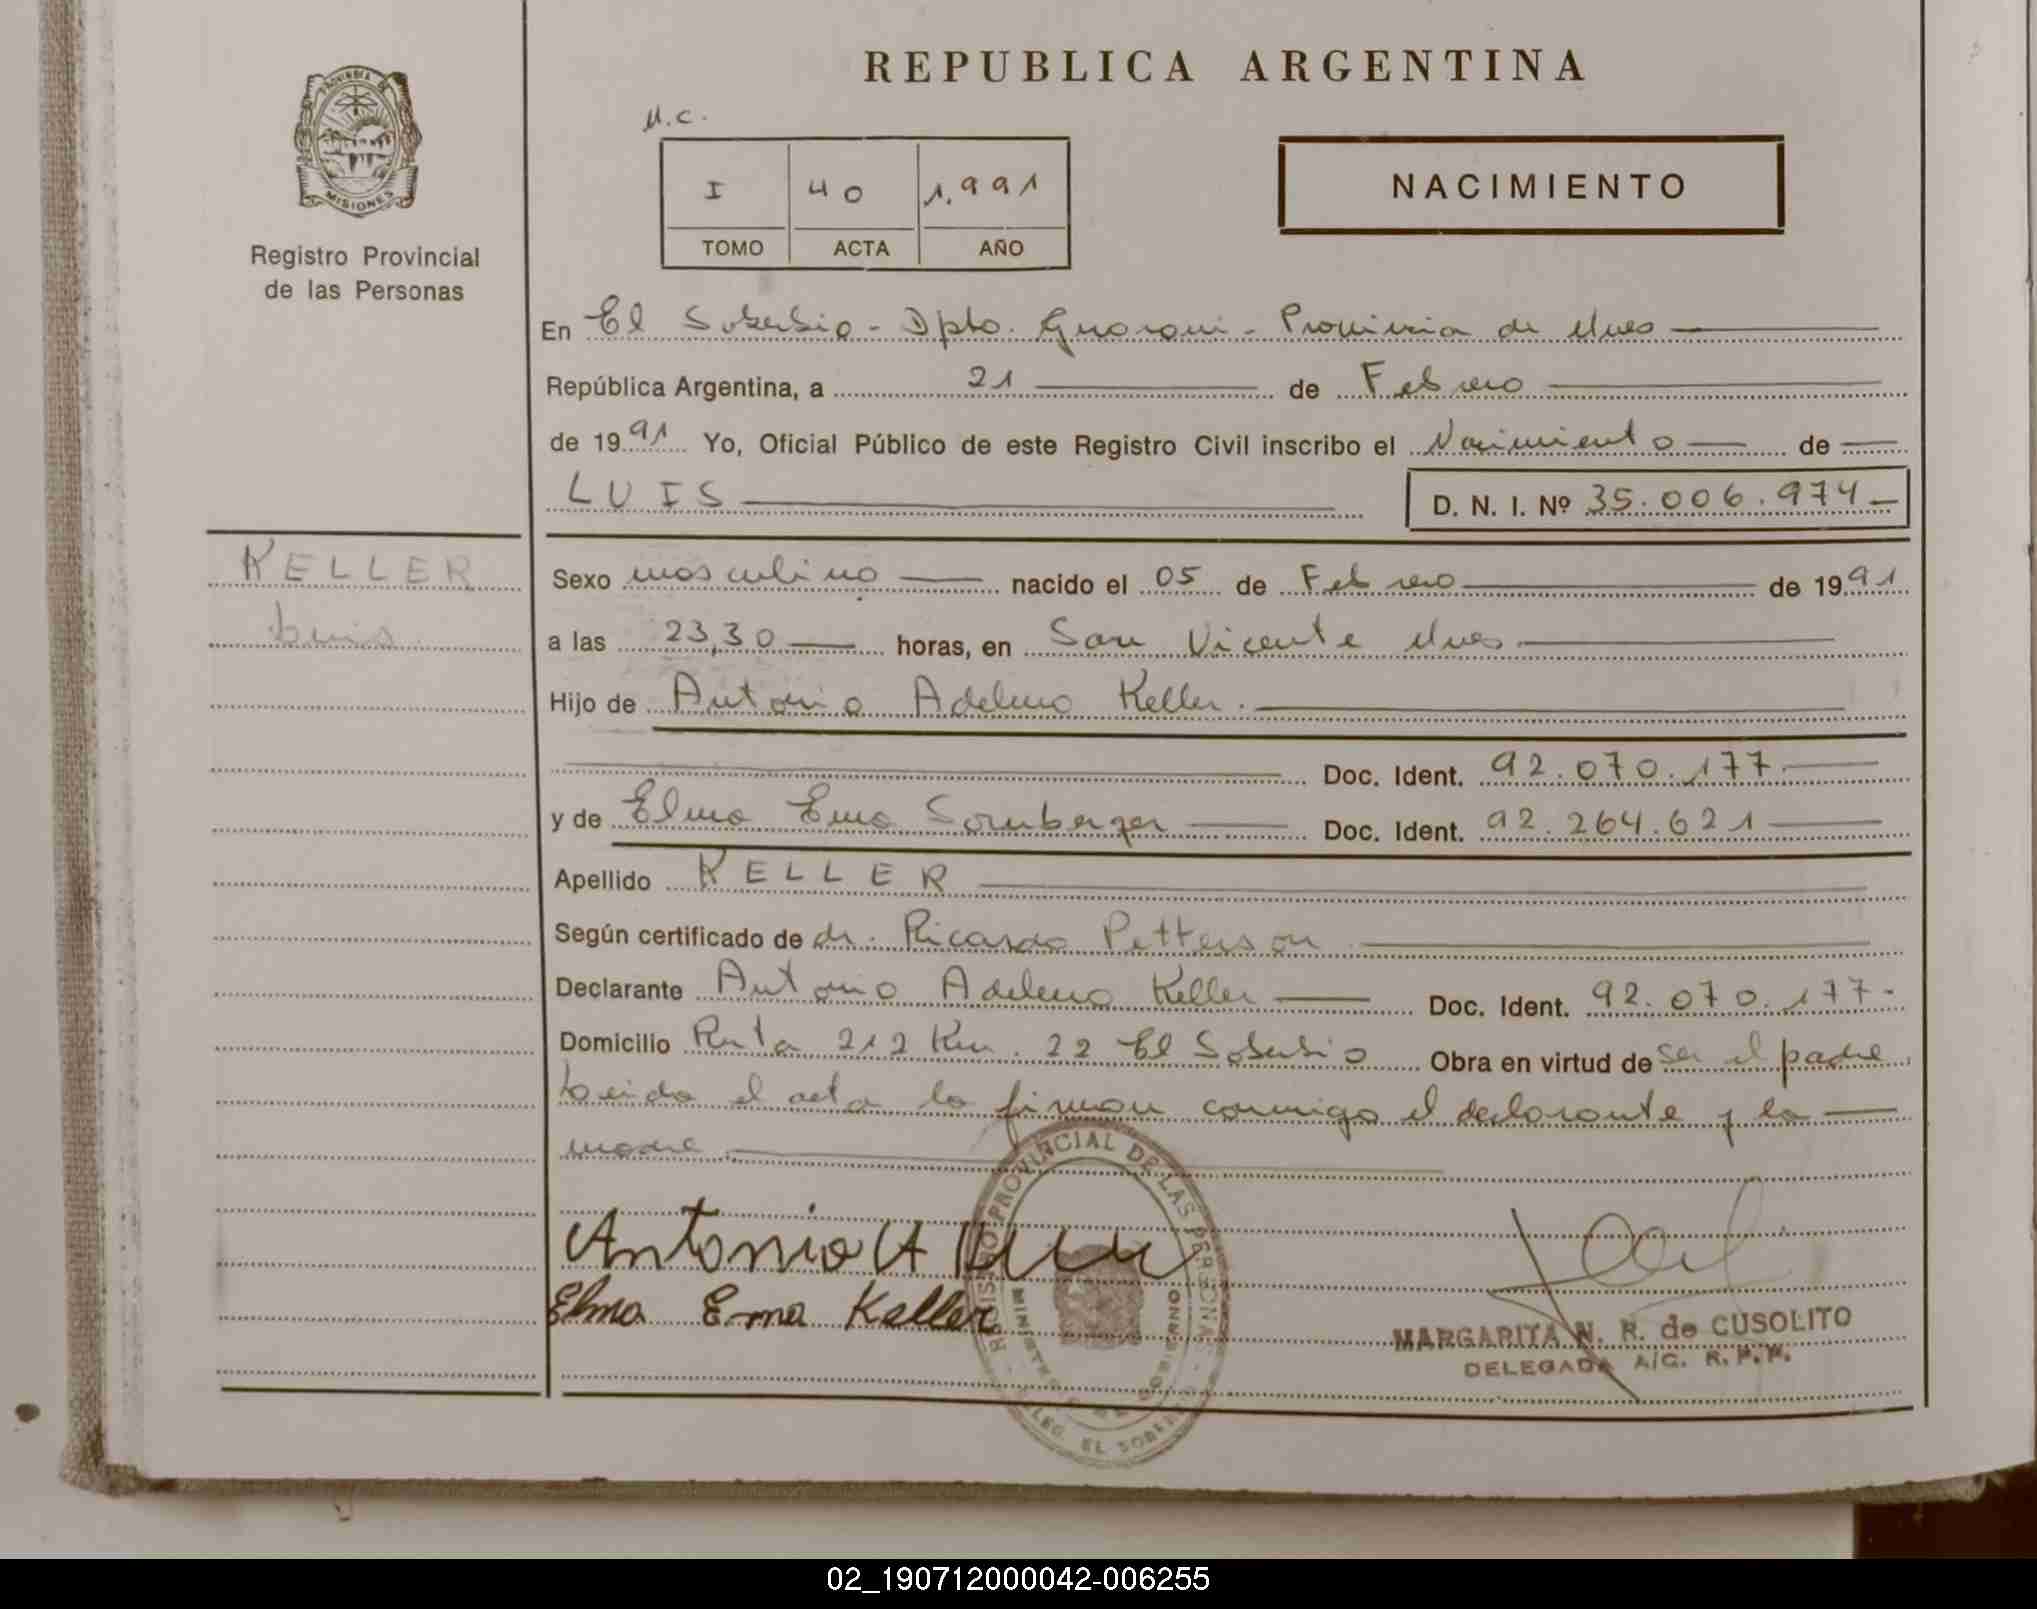 REPUBLICA ARGENTINA
PROVINCIA DE
MISIONES
Registro Provincial
de las Personas
M.C.
I 40 1.991
TOMO ACTA AÑO
NACIMIENTO
En El Soberbio - Dpto. Guarani - Provincia de Mnes
República Argentina, a 21 de Febrero
de 1991 Yo, Oficial Público de este Registro Civil inscribo el Nacimiento de
LUIS D. N. I. Nº 35.006.974
KELLER
Luis
Sexo masculino nacido el 05 de Febrero de 1991
a las 23,30 horas, en San Vicente Mnes
Hijo de Antonio Adelmo Keller.
Doc. Ident. 92.070.177
y de Elma Ema Sornberger Doc. Ident. 92.264.621
Apellido KELLER
Según certificado de dr. Ricardo Petterson
Declarante Antonio Adelmo Keller Doc. Ident. 92.070.177-
Domicilio Ruta 212 Km. 22 El Soberbio Obra en virtud de ser el padre
Leida el acta la firman conmigo el declarante y la
madre
REGISTRO PROVINCIAL DE LAS PERSONAS
MINISTERIO DE GOBIERNO
DELEG. EL SOBERBIO
Antonio A Keller
Elma Ema Keller
MARGARITA N. R. de CUSOLITO
DELEGADA A/C. R.P.P.
02_190712000042-006255